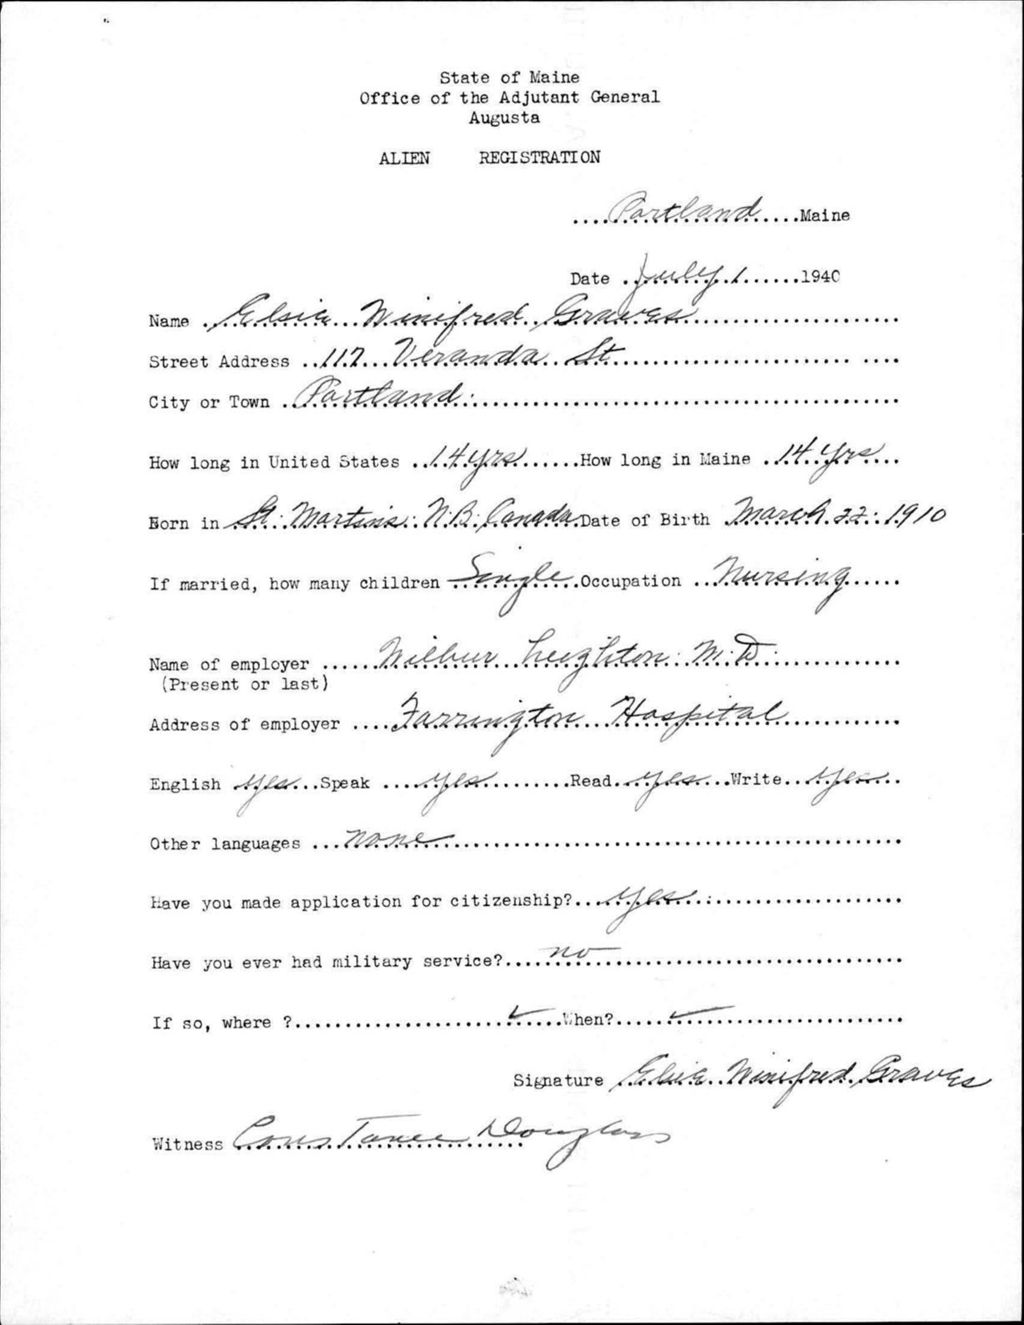 State of Maine
Office of the Adjutant General
Augusta
ALIEN REGISTRATION
....Portland....Maine
Date ..July 1......1940
Name ..Elsie Winifred Graves
Street Address ..117 Veranda St.
City or Town ..Portland.
How long in United States ..14 yrs......How long in Maine ..14 yrs...
Born in St. Martins, N.B. Canada Date of Birth March 22, 1910
If married, how many children Single Occupation ..Nursing......
Name of employer ......Wilbur Leighton. M.D.
(Present or last)
Address of employer ....Farrington Hospital
English yes...Speak ....yes.........Read..yes...Write...yes...
Other languages ...none
Have you made application for citizenship?...yes
Have you ever had military service?....no
If so, where ?......................✓.....When?.....✓
Signature Elsie Winifred Graves
Witness Constance Douglass